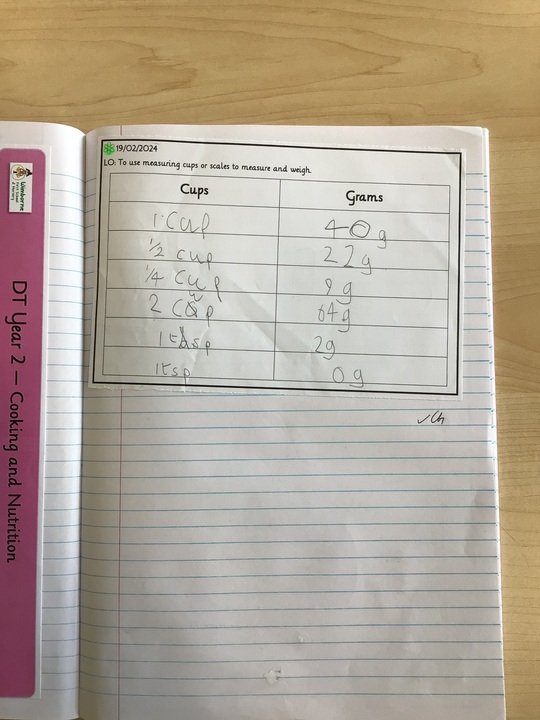 19/02/2024
LO: To use measuring cups or scales to measure and weigh.
Cups Grams
1 cup 40g
1/2 cup 22g
1/4 cup 9g
2 cup 64g
1 tbsp 2g
1 tsp 0g
DT Year 2 – Cooking and Nutrition
Wimborne
First School
& Nursery